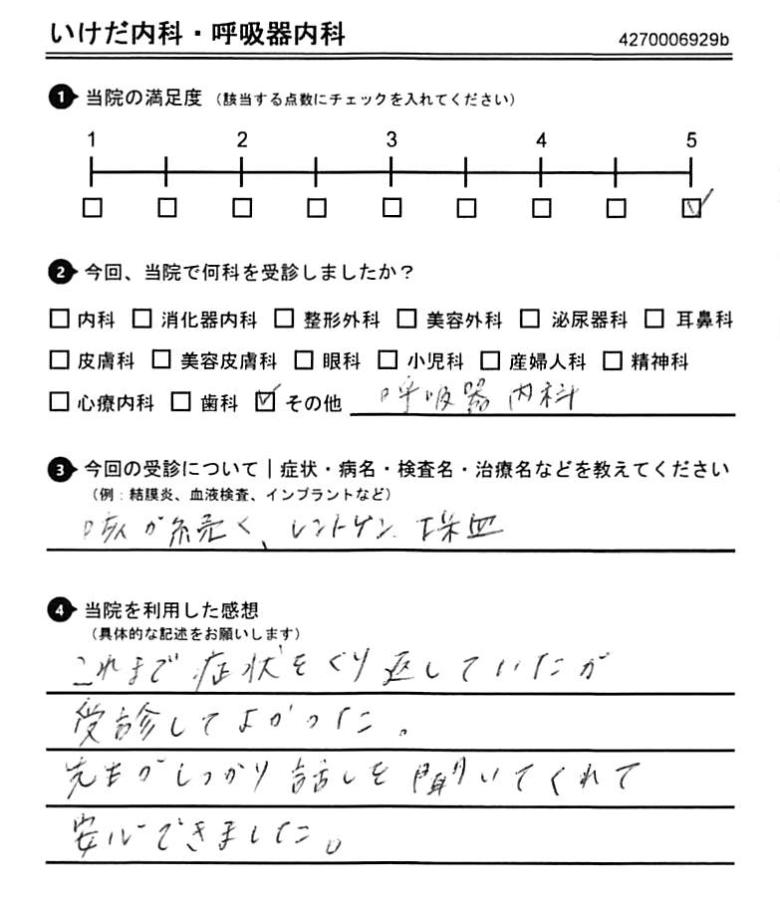 いけだ内科・呼吸器内科
4270006929b
1 当院の満足度（該当する点数にチェックを入れてください）
1 2 3 4 5
2 今回、当院で何科を受診しましたか？
内科 消化器内科 整形外科 美容外科 泌尿器科 耳鼻科
皮膚科 美容皮膚科 眼科 小児科 産婦人科 精神科
心療内科 歯科 その他 呼吸器内科
3 今回の受診について｜症状・病名・検査名・治療名などを教えてください
（例：結膜炎、血液検査、インプラントなど）
咳が続く、レントゲン、採血
4 当院を利用した感想
（具体的な記述をお願いします）
これまで症状をくり返していたが
受診してよかった。
先生がしっかり話しを聞いてくれて
安心できました。